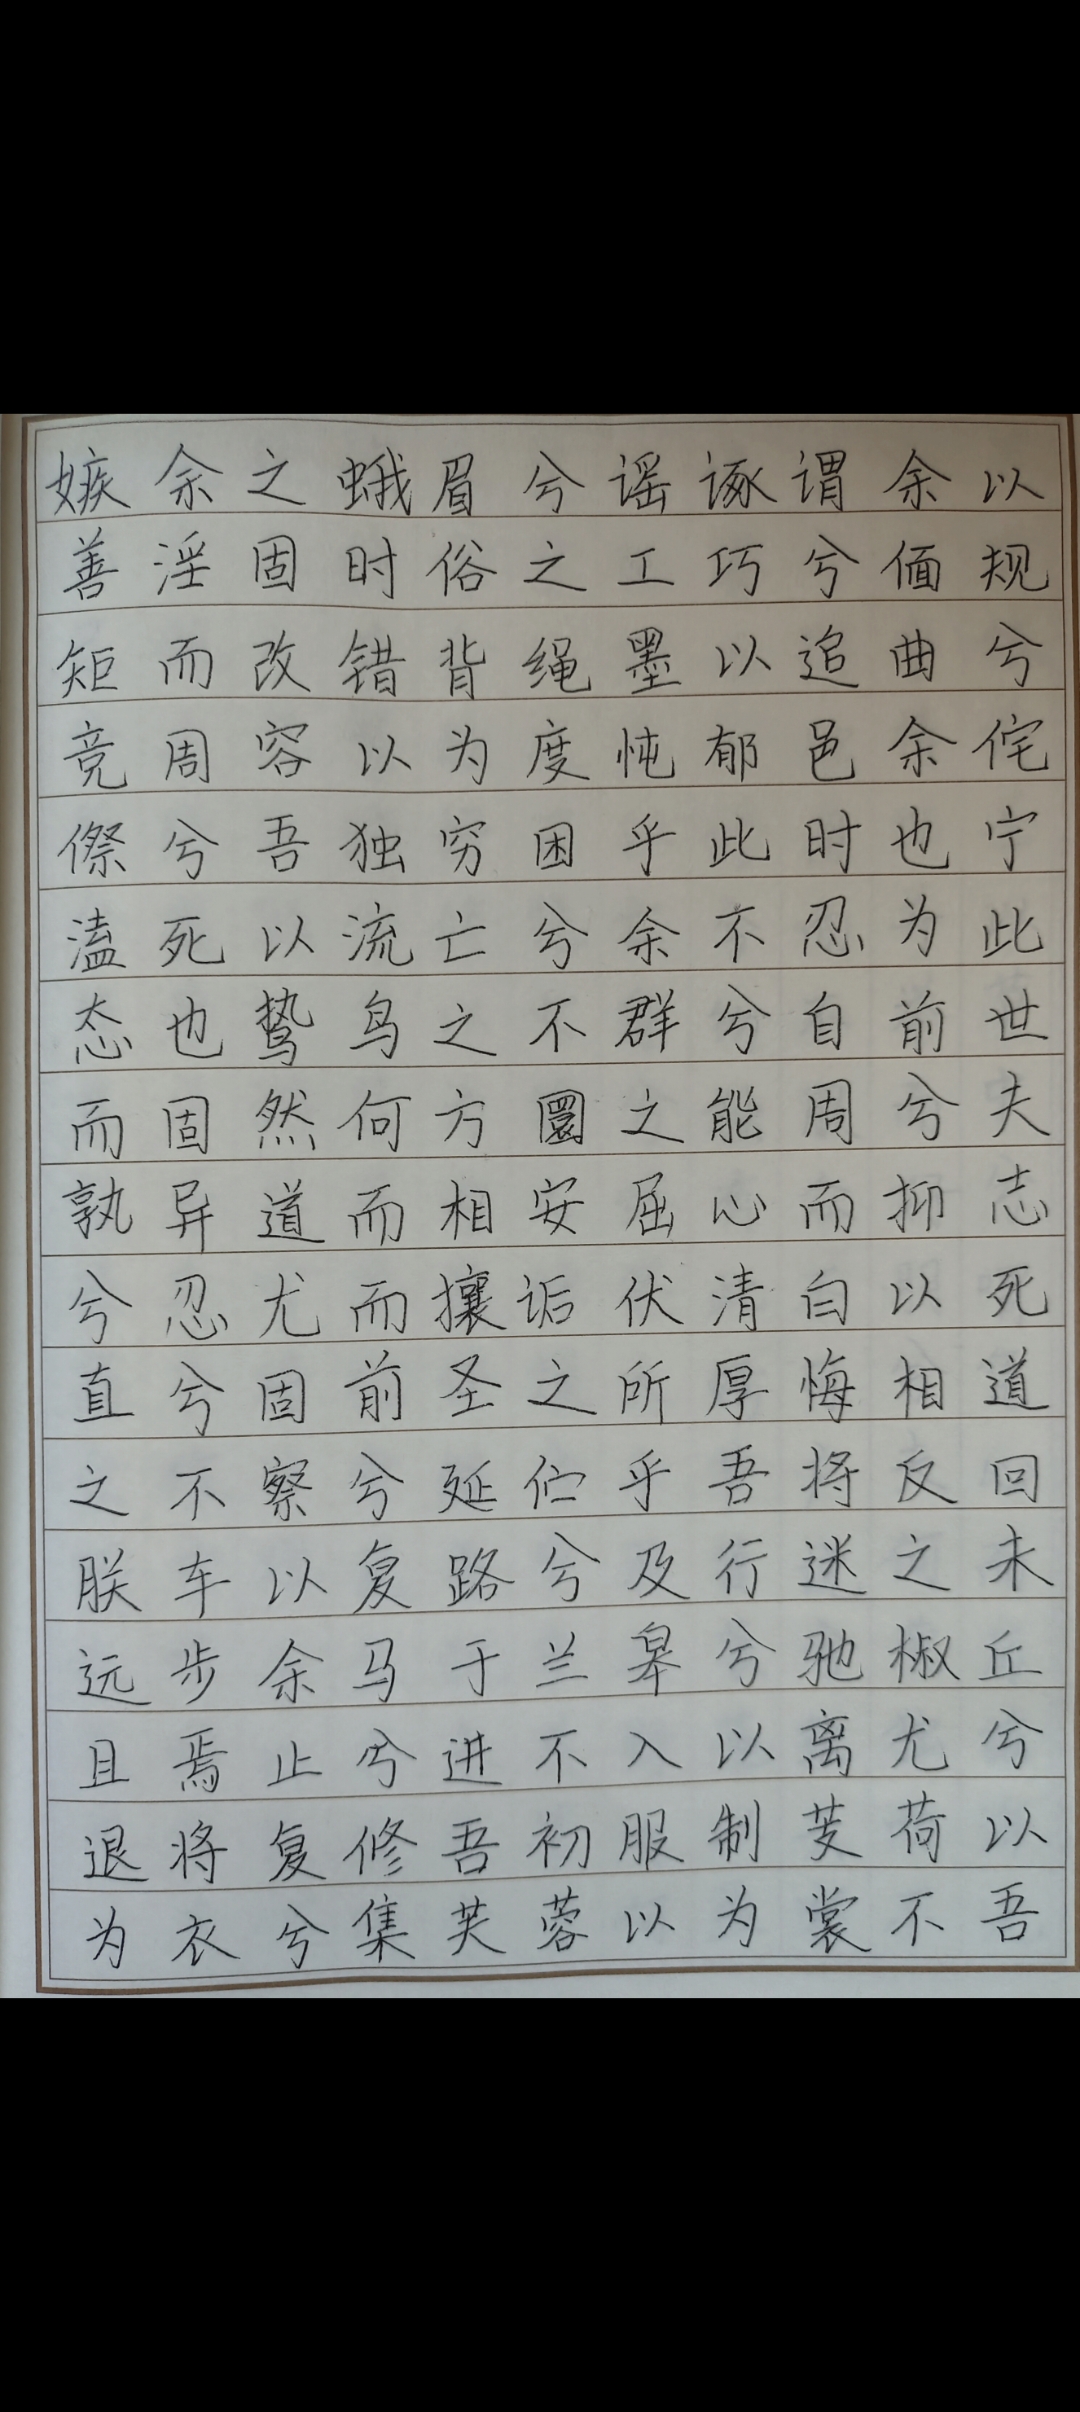 嫉余之蛾眉兮谣诼谓余以
善淫固时俗之工巧兮偭规
矩而改错背绳墨以追曲兮
竞周容以为度忳郁邑余侘
傺兮吾独穷困乎此时也宁
溘死以流亡兮余不忍为此
态也鸷鸟之不群兮自前世
而固然何方圜之能周兮夫
孰异道而相安屈心而抑志
兮忍尤而攘诟伏清白以死
直兮固前圣之所厚悔相道
之不察兮延伫乎吾将反回
朕车以复路兮及行迷之未
远步余马于兰皋兮驰椒丘
且焉止兮进不入以离尤兮
退将复修吾初服制芰荷以
为衣兮集芙蓉以为裳不吾